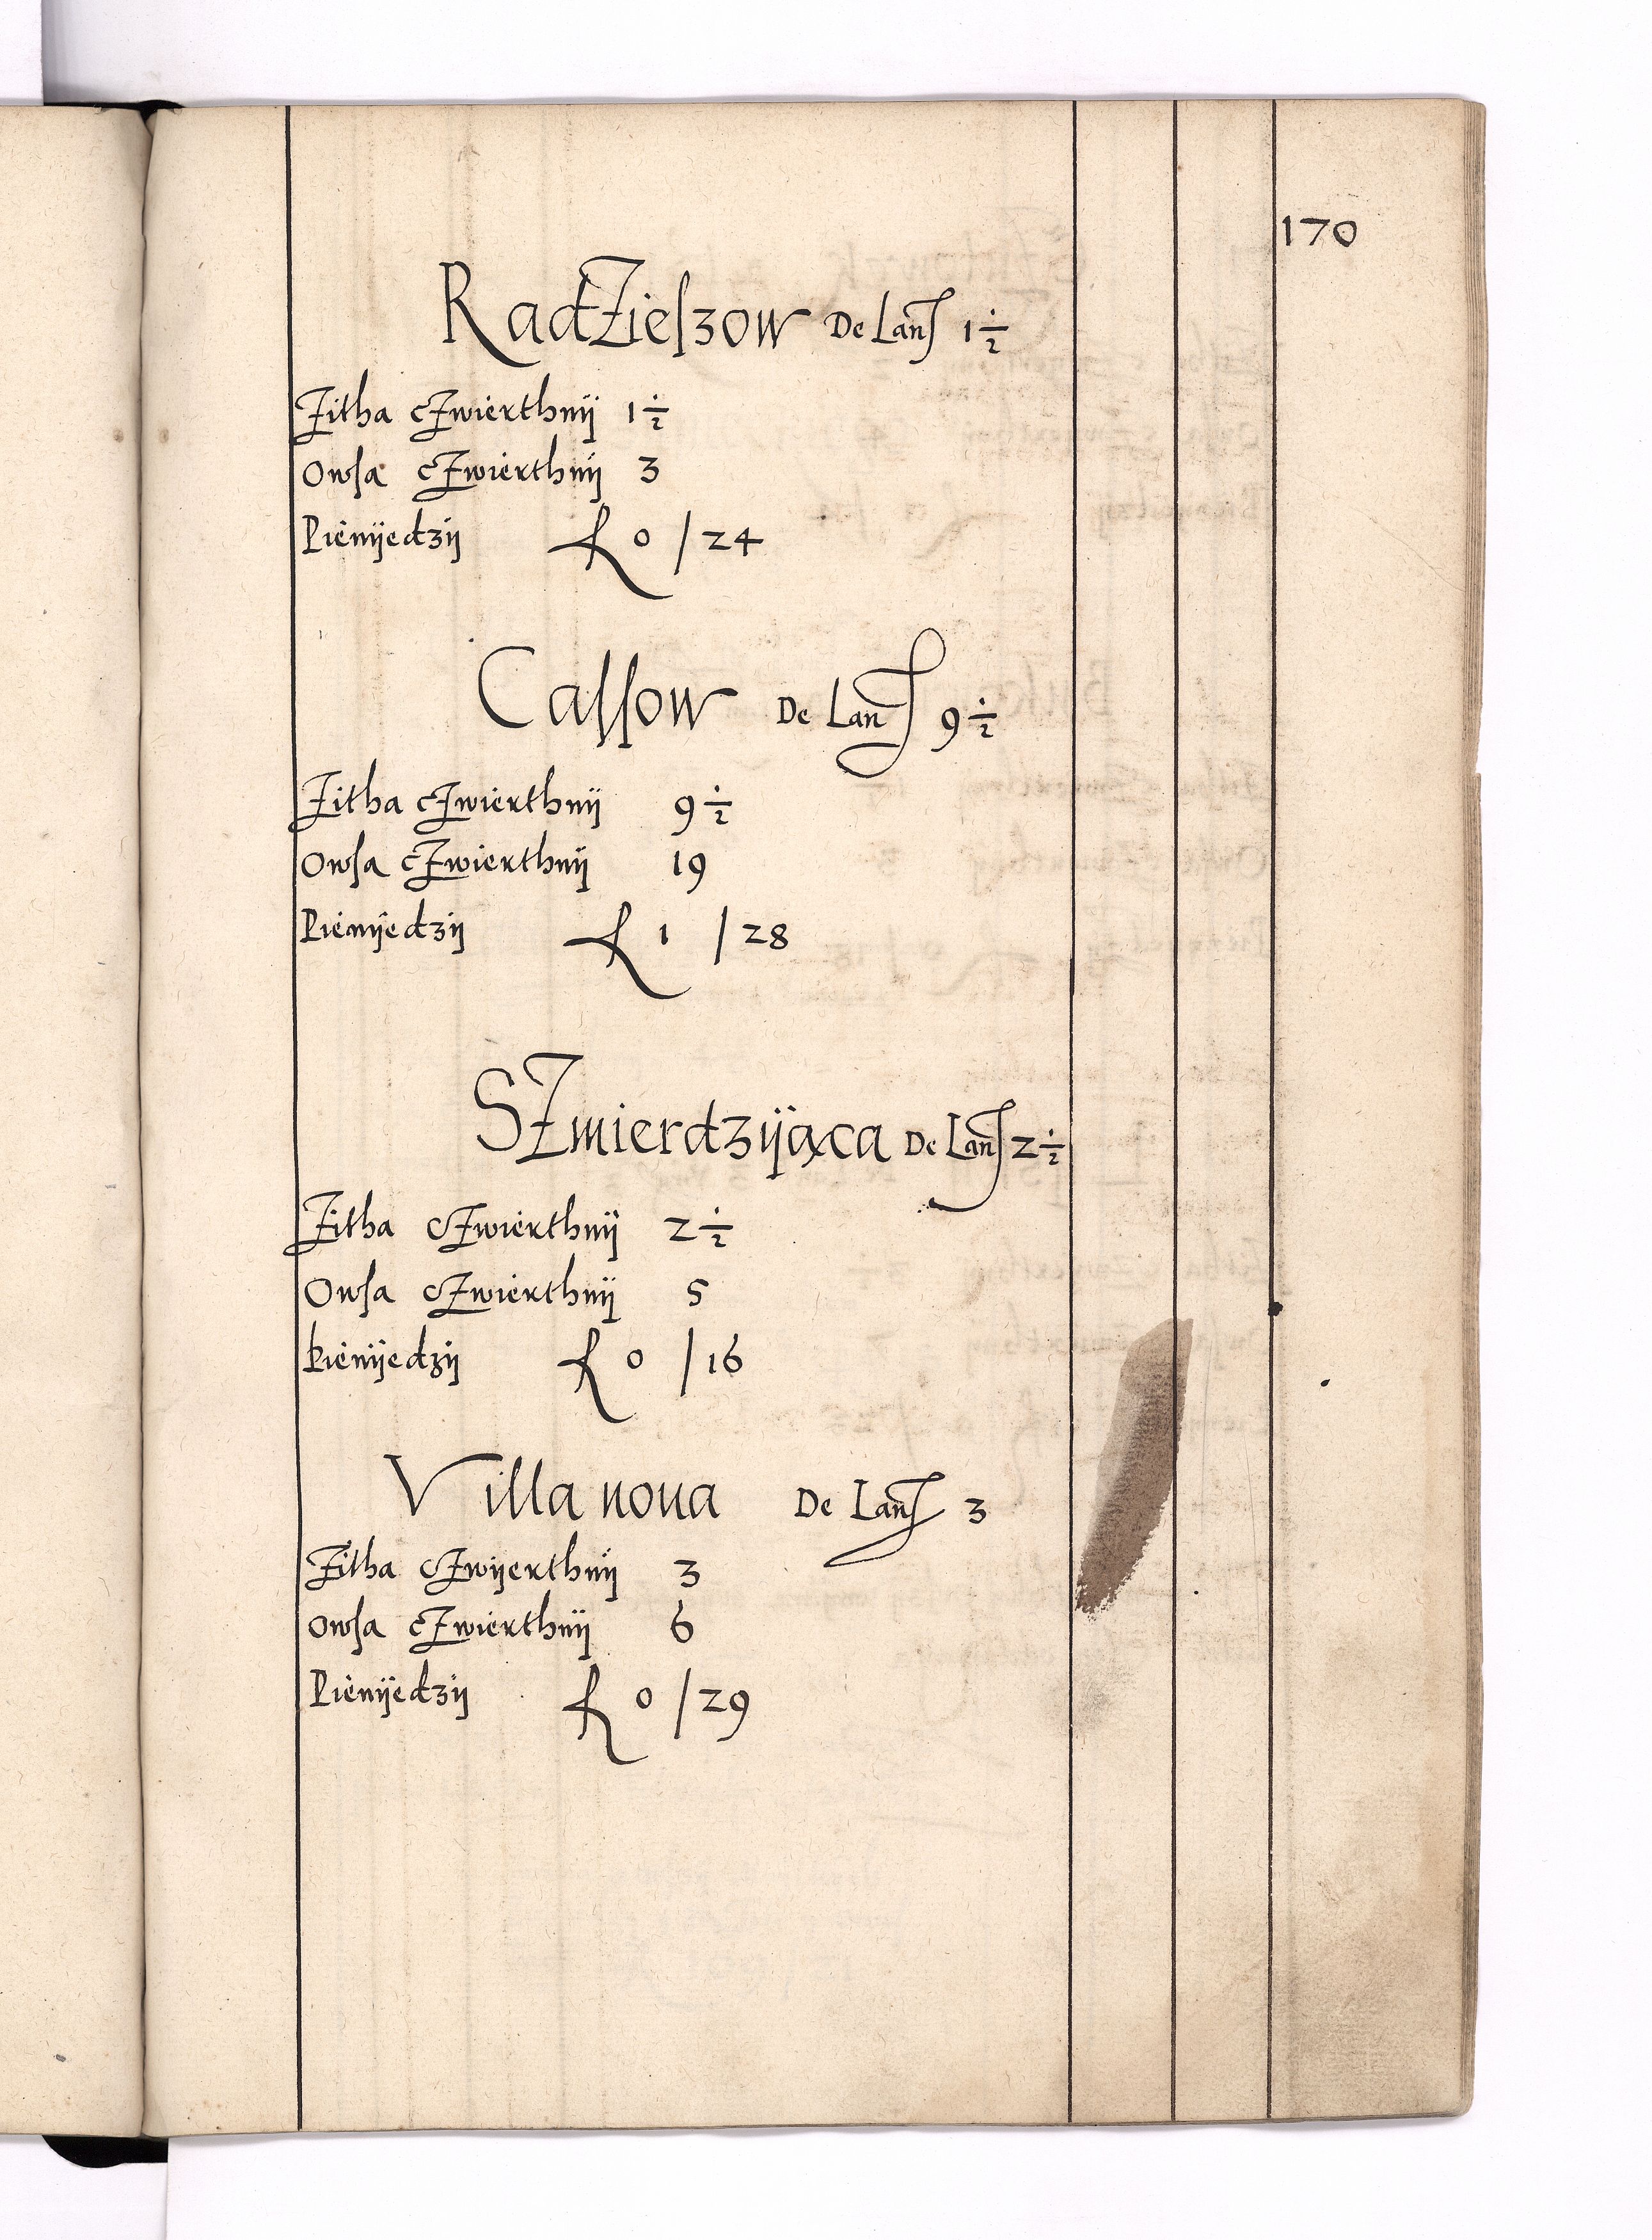 170
Radzieſzow De Lanſ 1 ½
Zitha cZwierthnÿ 1 ½
Owſa cZwierthnÿ 3
Pienÿedzÿ ƒ 0 / 24
Caſſow De Lanſ 9 ½
Zitha cZwierthnÿ 9 ½
Owſa cZwierthnÿ 19
Pienÿedzÿ ƒ 1 / 28
SZmierdzÿąca De Lanſ 2 ½
Zitha cZwierthnÿ 2 ½
Owſa cZwierthnÿ 5
Pienÿedzÿ ƒ 0 / 16
Villa noua De Lanſ 3
Zitha cZwÿerthnÿ 3
Owſa cZwierthnÿ 6
Pienÿedzÿ ƒ 0 / 29